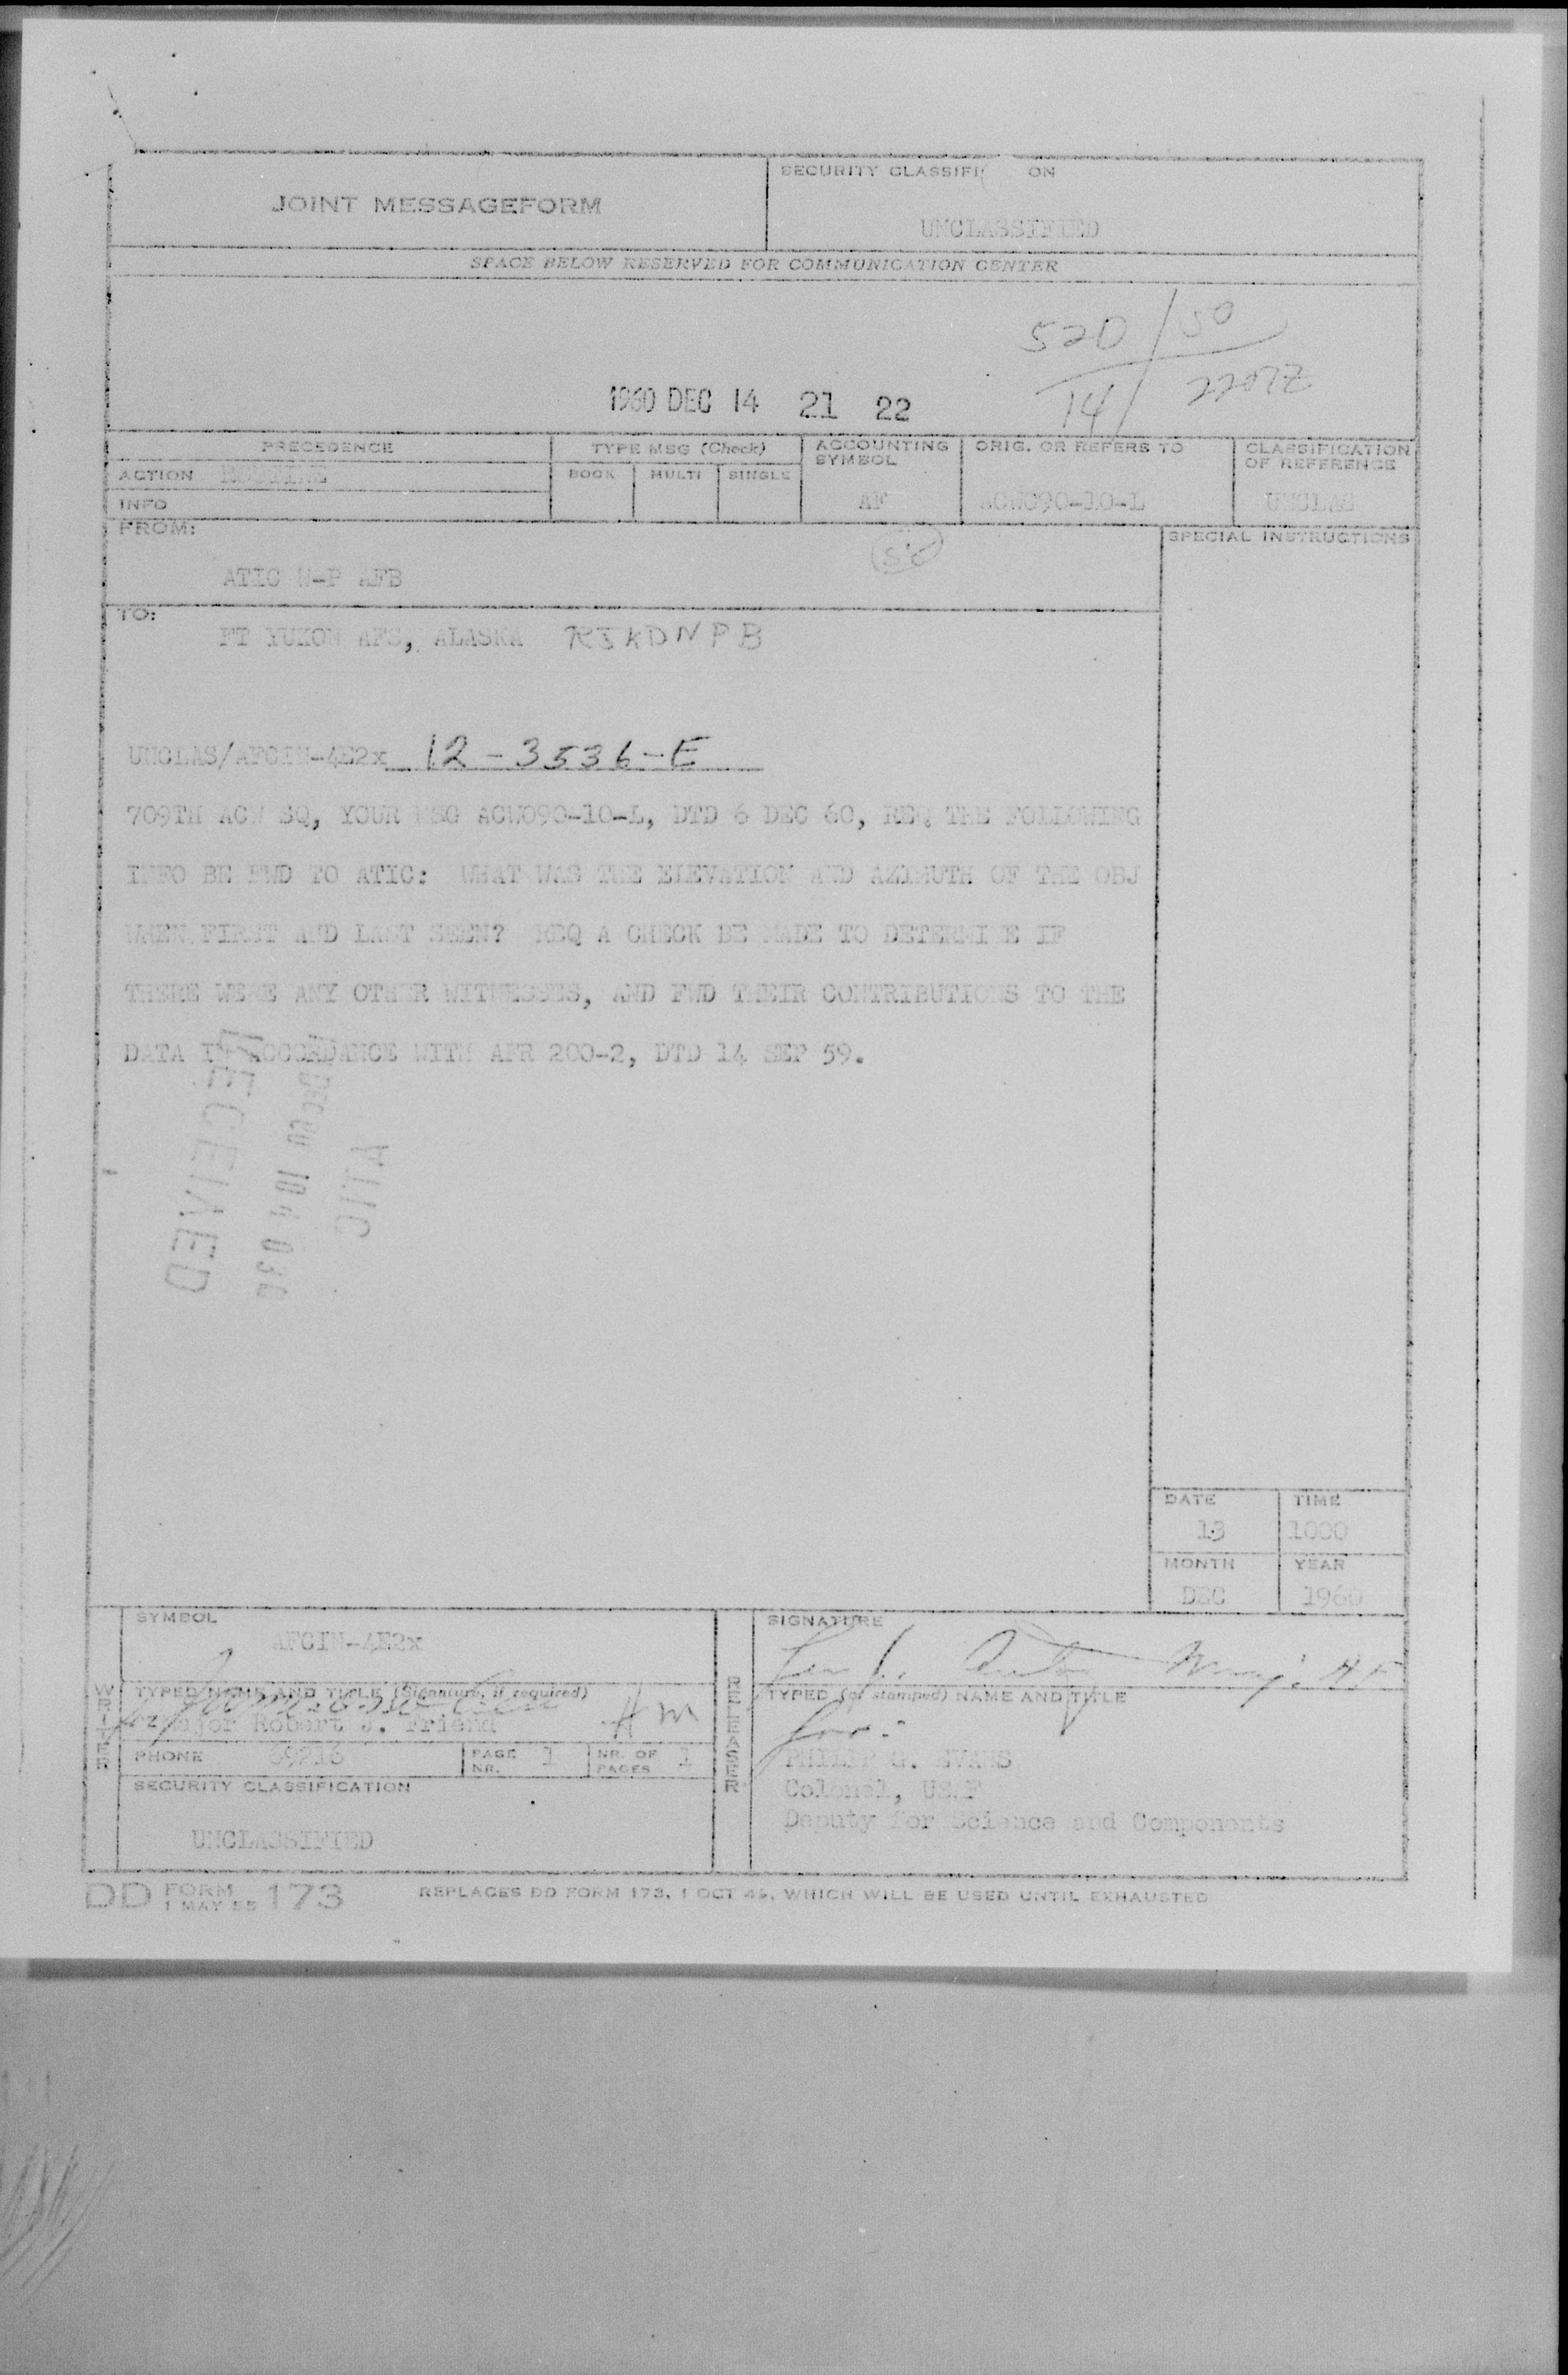 JOINT MESSAGEFORM
SECURITY CLASSIFI ON
UNCLASSIFIED
SPACE BELOW RESERVED FOR COMMUNICATION CENTER
520 / 50
14 / 2207Z
1960 DEC 14 21 22
PRECEDENCE
TYPE MSG (Check)
ACCOUNTING SYMBOL
ORIG. OR REFERS TO
CLASSIFICATION OF REFERENCE
ACTION ROUTINE
BOOK MULTI SINGLE
INFO
AF
ACWO90-10-L
UNCLAS
FROM:
SPECIAL INSTRUCTIONS
ATIC W-P AFB
TO:
FT YUKON AFS, ALASKA RJKDNPB
UNCLAS/AFCIN-4E2x 12-3536-E
709TH ACW SQ, YOUR MSG ACWO90-10-L, DTD 6 DEC 60, REQ THE FOLLOWING
INFO BE FWD TO ATIC: WHAT WAS THE ELEVATION AND AZIMUTH OF THE OBJ
WHEN FIRST AND LAST SEEN? REQ A CHECK BE MADE TO DETERMI E IF
THERE WERE ANY OTHER WITNESSES, AND FWD THEIR CONTRIBUTIONS TO THE
DATA IN ACCORDANCE WITH AFR 200-2, DTD 14 SEP 59.
RECEIVED
ATIC
DATE TIME
13 1000
MONTH YEAR
DEC 1960
SYMBOL
AFCIN-4E2x
SIGNATURE
WRITER
TYPED NAME AND TITLE (Signature, if required)
Major Robert J. Friend
PHONE 69216
PAGE NR. 1
NR. OF PAGES 1
SECURITY CLASSIFICATION
UNCLASSIFIED
RELEASER
TYPED (or stamped) NAME AND TITLE
for:
PHILIP G. EVANS
Colonel, USAF
Deputy for Science and Components
DD FORM 1 MAY 55 173
REPLACES DD FORM 173, 1 OCT 49, WHICH WILL BE USED UNTIL EXHAUSTED